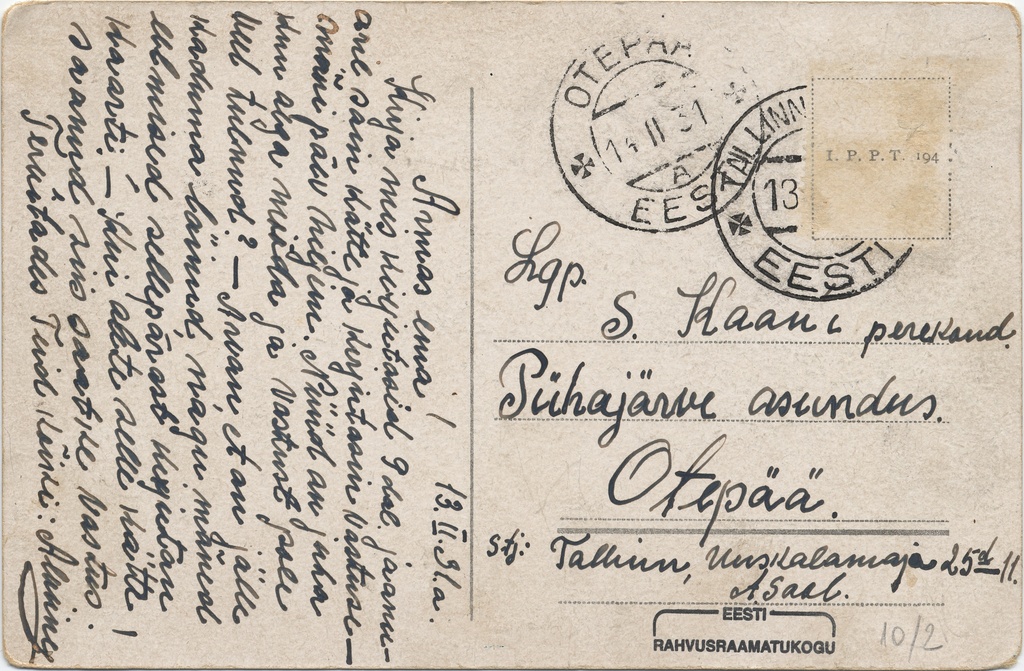 13.II.31.a.
Armas ema!
Kirja mis kirjutasid 9 dal. jaanu-
aril sain kätte ja kirjutasin vastuse
omäi päev hiljem. Nüüd on juba
kuu aga mööda ja vastust pole
veel tulnud? — Arvan et on jälle
kadunna läinud, nagu mõned
eelmised sellepärast kirjutan
kaarti. — Kui olete selle kätte
saanud siis saatke vastus!
Tervitades Teid kõiki:
OTEPÄÄ
14 II 31
A
EESTI
TALLINN
13
EESTI
I. P. P. T. 194
Lgp.
S. Kaani perekond.
Pühajärve asundus.
Otepää.
Stj: Tallinn, Uuskalamaja 25d 11.
A. Saal.
EESTI
RAHVUSRAAMATUKOGU
10/2